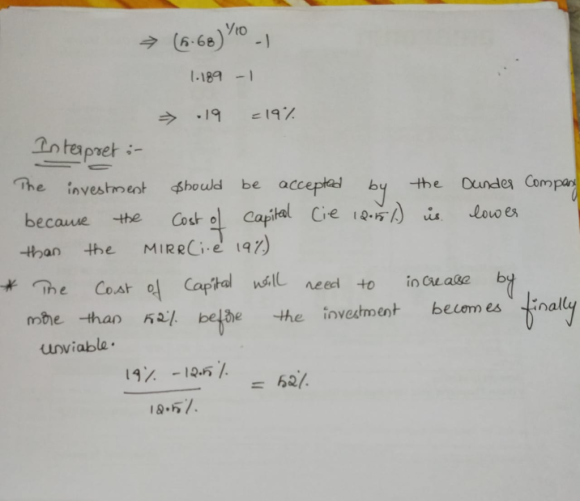 ⇒ (5.68)^1/10 -1
1.189 -1
⇒ .19 =19%
Interpret :-
The investment should be accepted by the Dunder Company
because the Cost of Capital (ie 12.5%) is lower
than the MIRR(i.e 19%)
* The Cost of Capital will need to increase by
more than 52% before the investment becomes finally
unviable.
19% -12.5% / 12.5% = 52%